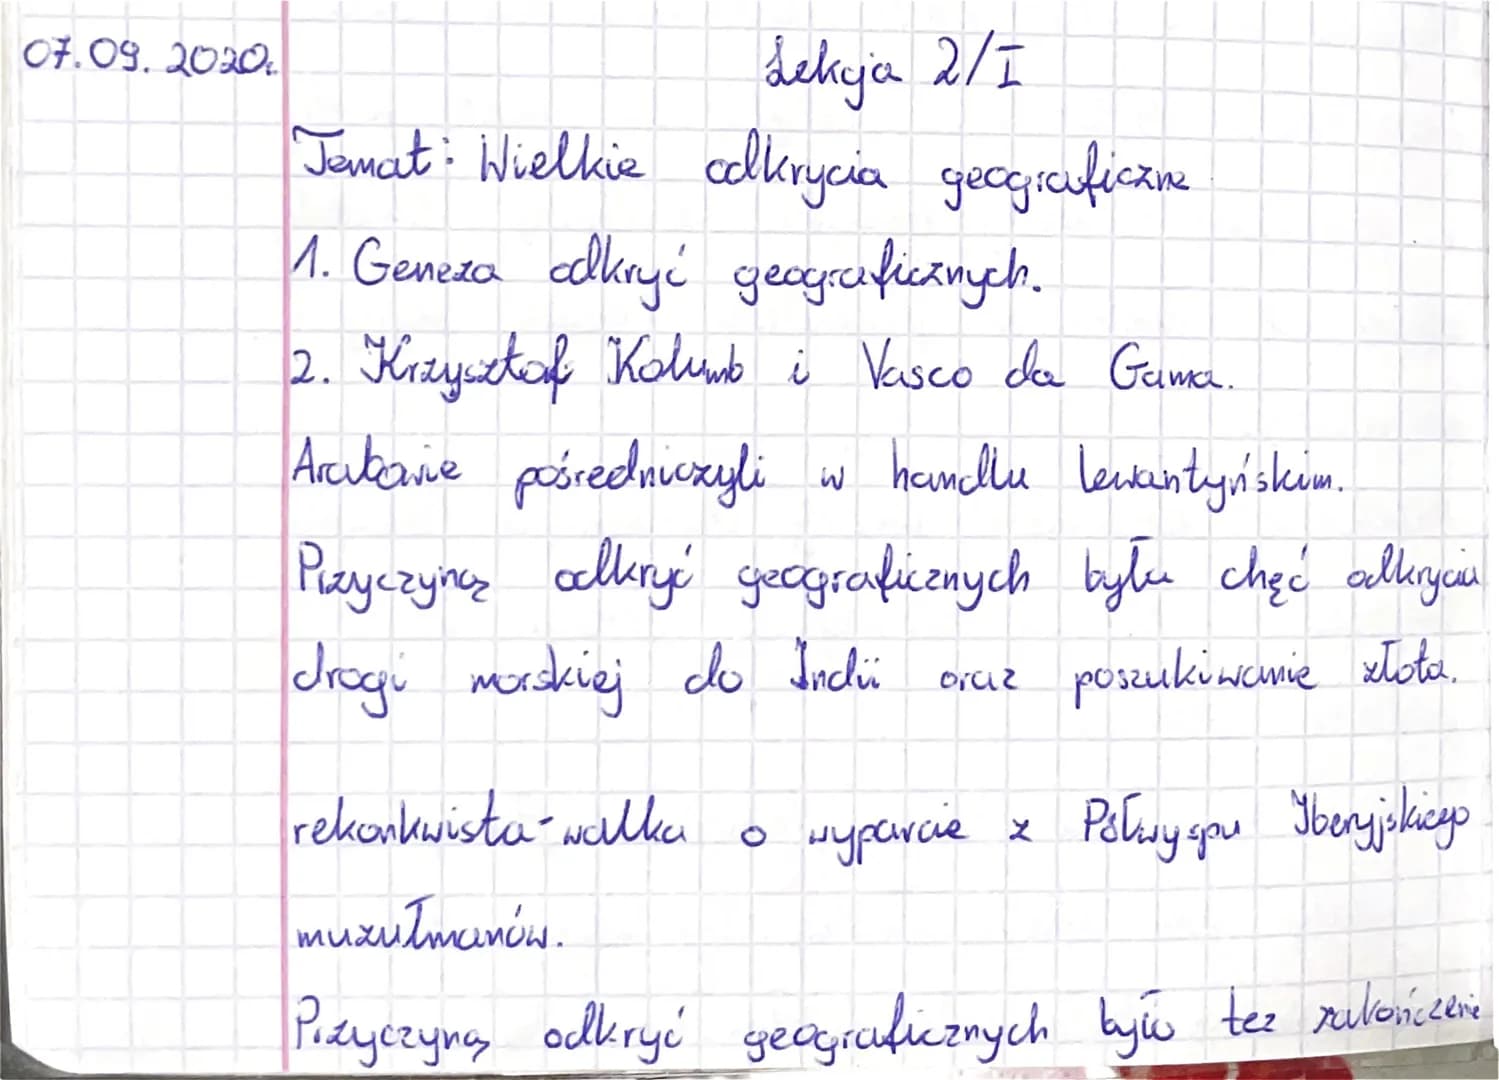 07.09.2020r. Lekcja 2/I
Temat: Wielkie odkrycia geograficzne
1. Geneza odkryć geograficznych.
2. Krzysztof Kolumb i Vasco da Gama.
Arabowie pośredniczyli w handlu lewantyńskim.
Przyczyną odkryć geograficznych była chęć odkrycia
drogi morskiej do Indii oraz poszukiwanie złota.
rekonkwista-walka o wyparcie z Półwyspu Iberyjskiego
muzułmanów.
Przyczyną odkryć geograficznych było też zakończenie